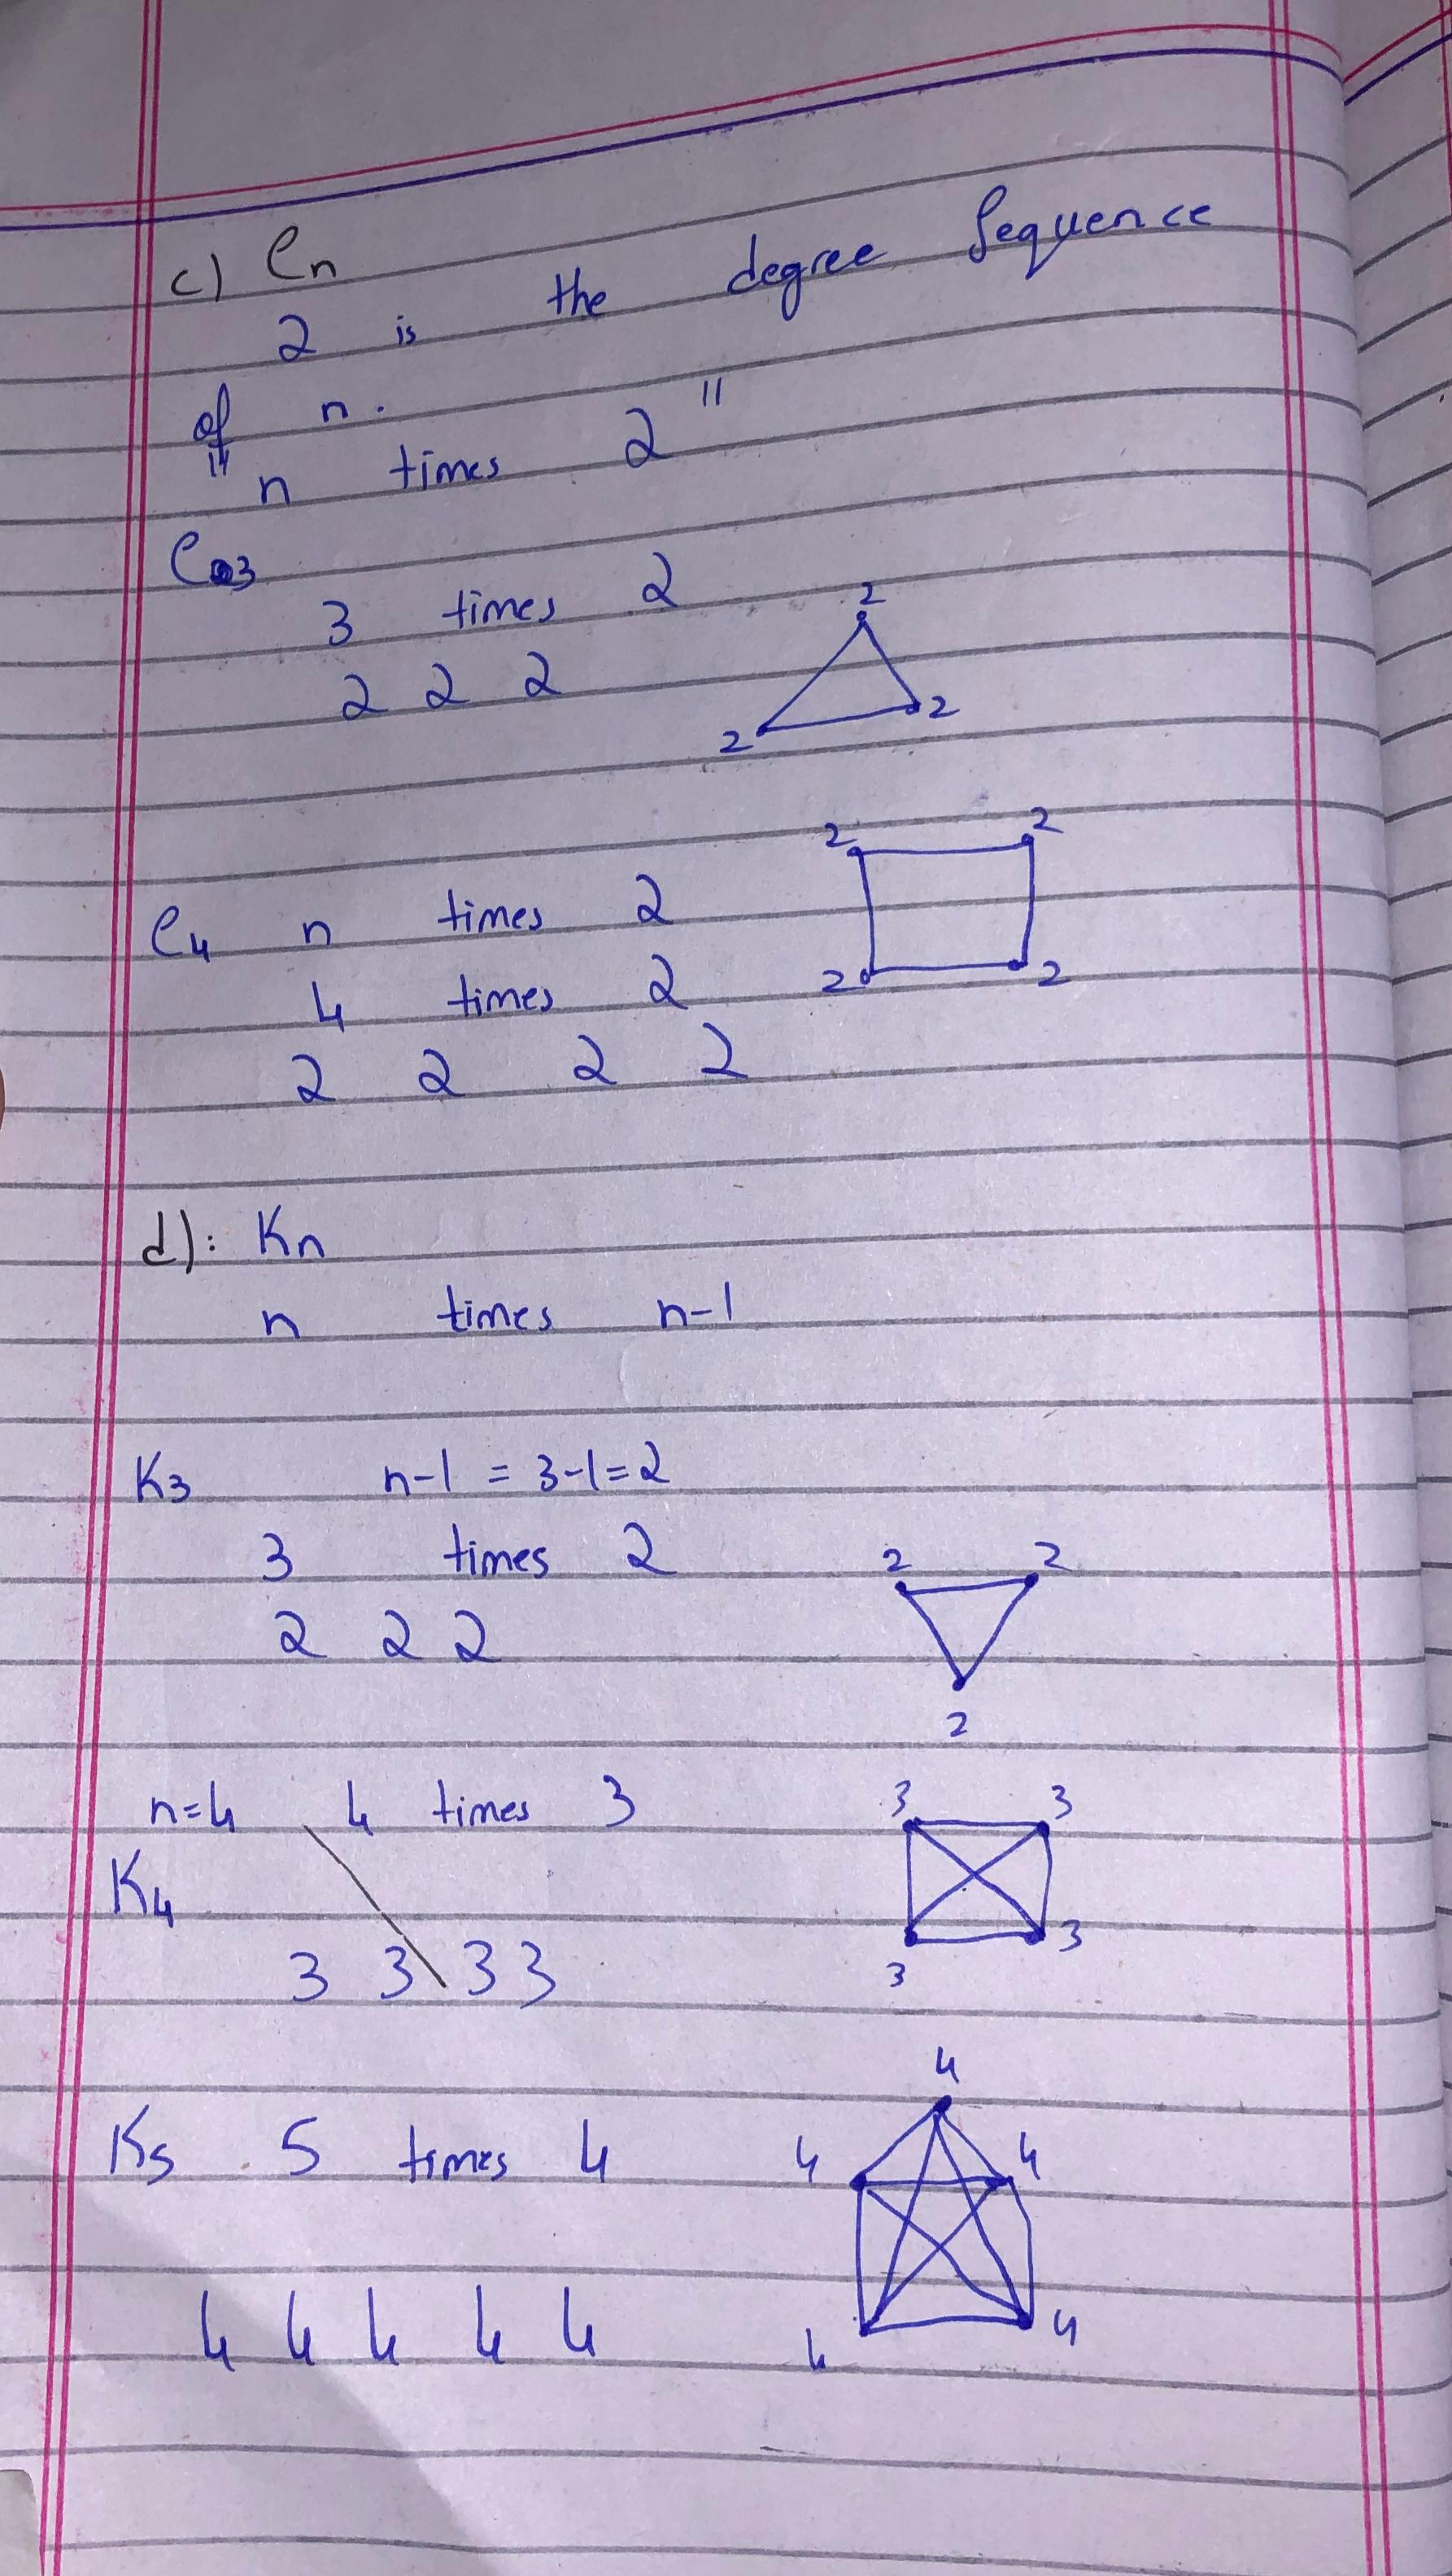 c) Cn
2 is the degree Sequence
of n.
" n times 2 "
C3
3 times 2
2 2 2
2
2
2
C4 n times 2
4 times 2
2 2 2 2
2 2
2 2
d): Kn
n times n-1
K3 n-1 = 3-1=2
3 times 2
2 2 2
2 2
2
n=4 4 times 3
K4
3 3 3 3
3 3
3
3
K5 5 times 4
4 4 4 4 4
4
4 4
4 4